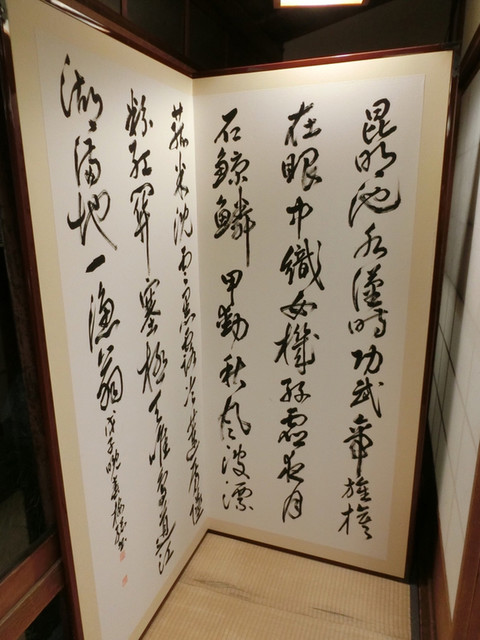 昆明池水漢時功武帝旌旗
在眼中織女機絲虚夜月
石鯨鱗甲動秋風波漂
菰米沈雲黒露冷蓮房墜
粉紅関塞極天唯鳥道江
湖満地一漁翁 戊子晩春